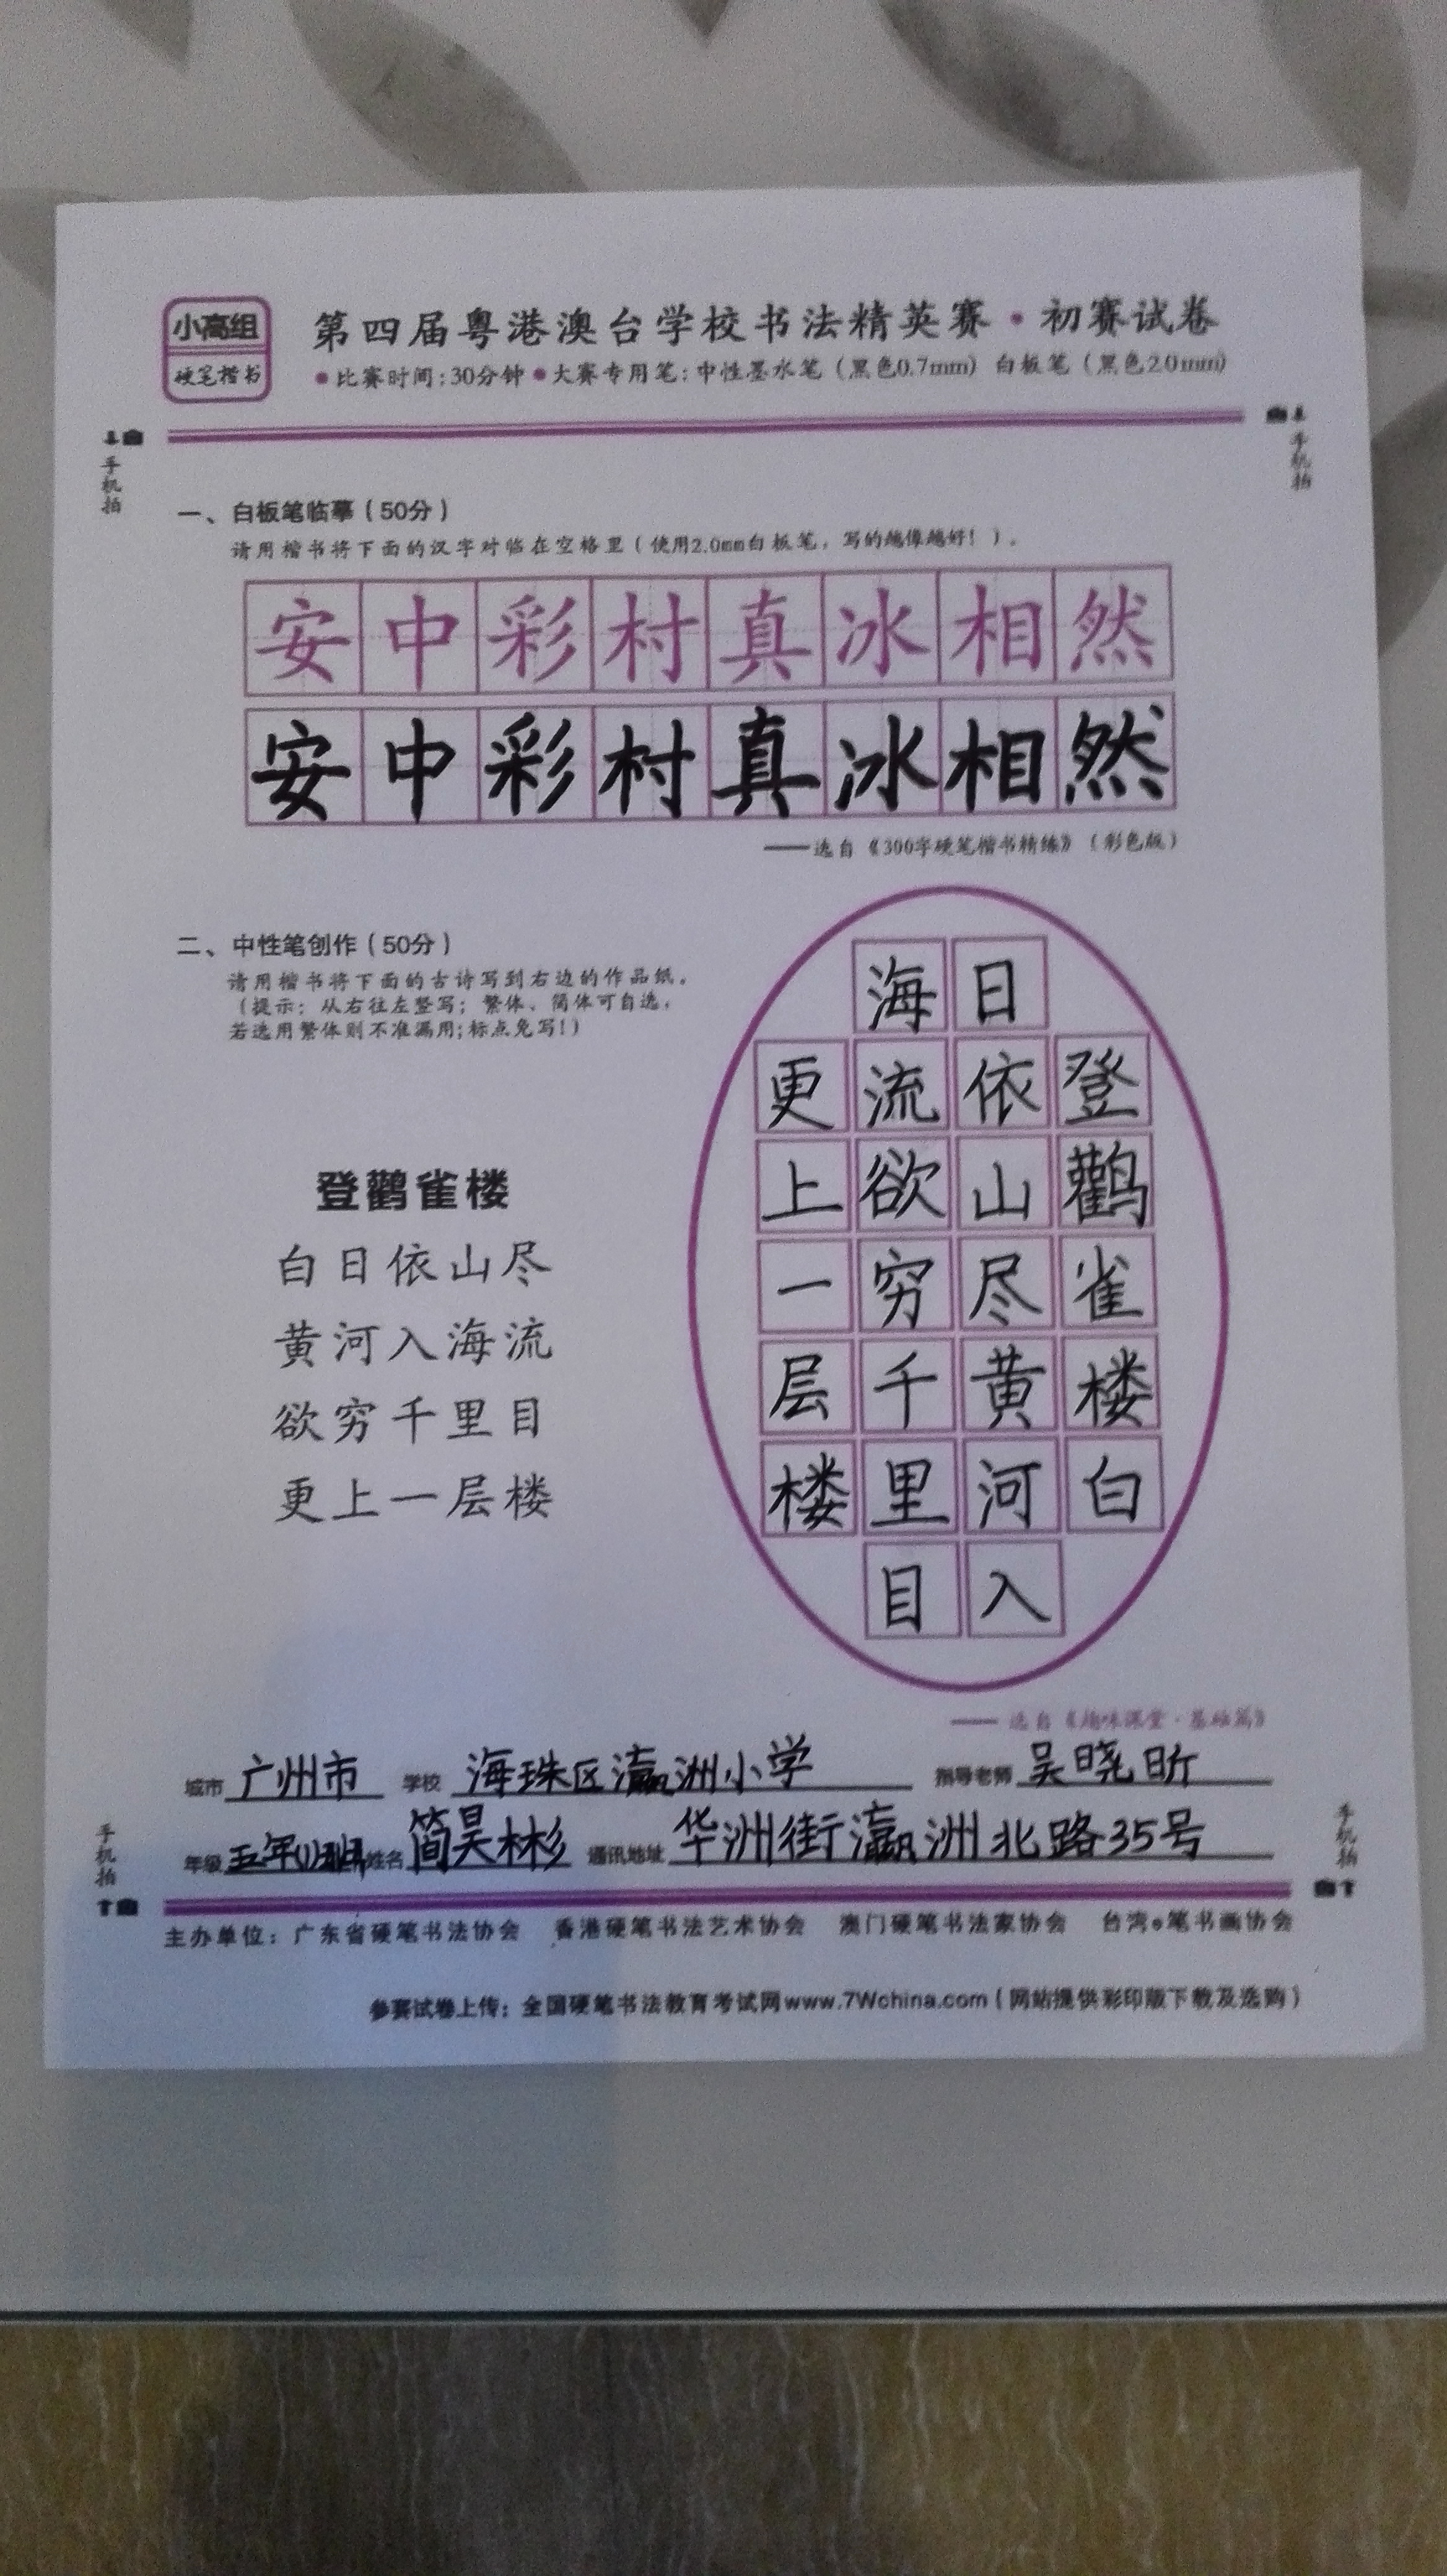 小高组
硬笔楷书
第四届粤港澳台学校书法精英赛·初赛试卷
●比赛时间:30分钟●大赛专用笔:中性墨水笔（黑色0.7mm）白板笔（黑色2.0mm）
手机拍
手机拍
一、白板笔临摹（50分）
请用楷书将下面的汉字对临在空格里（使用2.0mm白板笔，写的越像越好！）。
安中彩村真冰相然
安中彩村真冰相然
——选自《300字硬笔楷书精练》（彩色版）
二、中性笔创作（50分）
请用楷书将下面的古诗写到右边的作品纸。
（提示：从右往左竖写；繁体、简体可自选，
若选用繁体则不准漏用;标点免写!）
登鹳雀楼
白日依山尽
黄河入海流
欲穷千里目
更上一层楼
登鹳雀楼白
日依山尽黄河入
海流欲穷千里目
更上一层楼
——选自《趣味课堂·基础篇》
城市 广州市 学校 海珠区瀛洲小学 指导老师 吴晓昕
年级 五年(1)班 姓名 简昊彬 通讯地址 华洲街瀛洲北路35号
手机拍
手机拍
主办单位：广东省硬笔书法协会 香港硬笔书法艺术协会 澳门硬笔书法家协会 台湾e笔书画协会
参赛试卷上传：全国硬笔书法教育考试网www.7Wchina.com（网站提供彩印版下载及选购）